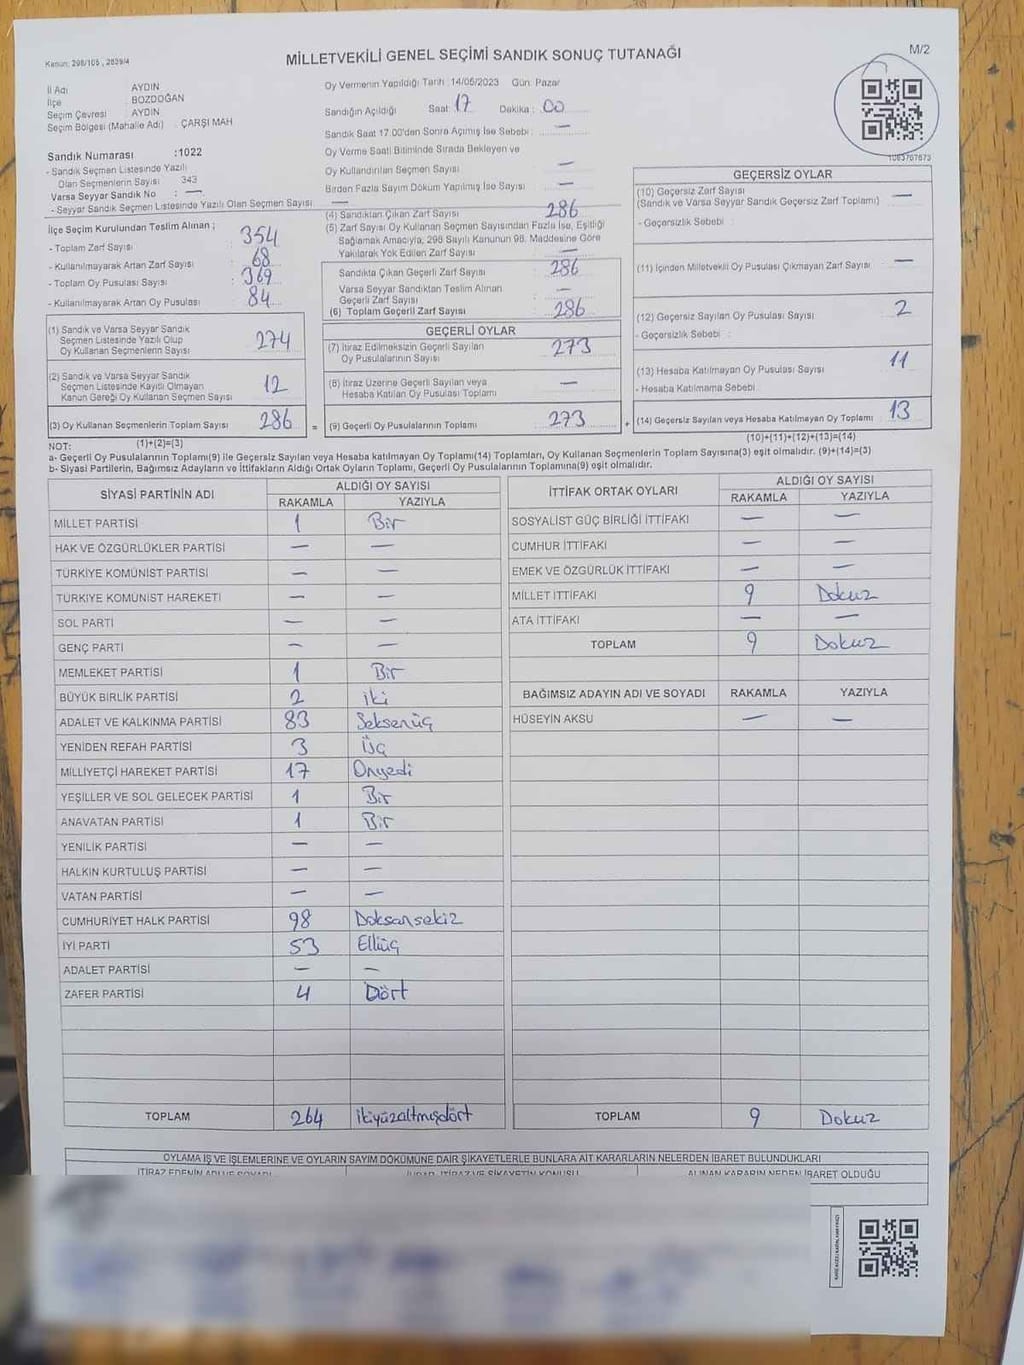 Kanun: 298/105, 2839/4
MİLLETVEKİLİ GENEL SEÇİMİ SANDIK SONUÇ TUTANAĞI
M/2
İl Adı : AYDIN
İlçe : BOZDOĞAN
Seçim Çevresi : AYDIN
Seçim Bölgesi (Mahalle Adı) : ÇARŞI MAH
Sandık Numarası :1022
- Sandık Seçmen Listesinde Yazılı
Olan Seçmenlerin Sayısı : 343
Varsa Seyyar Sandık No : —
- Seyyar Sandık Seçmen Listesinde Yazılı Olan Seçmen Sayısı: —
Oy Vermenin Yapıldığı Tarih :14/05/2023 Gün: Pazar
Sandığın Açıldığı Saat : 17 Dakika : 00
Sandık Saat 17.00'den Sonra Açılmış İse Sebebi : —
Oy Verme Saati Bitiminde Sırada Bekleyen ve
Oy Kullandırılan Seçmen Sayısı : —
Birden Fazla Sayım Döküm Yapılmış İse Sayısı : —
İlçe Seçim Kurulundan Teslim Alınan ;
- Toplam Zarf Sayısı : 354
- Kullanılmayarak Artan Zarf Sayısı : 68
- Toplam Oy Pusulası Sayısı : 369
- Kullanılmayarak Artan Oy Pusulası : 84
(1) Sandık ve Varsa Seyyar Sandık
Seçmen Listesinde Yazılı Olup
Oy Kullanan Seçmenlerin Sayısı : 274
(2) Sandık ve Varsa Seyyar Sandık
Seçmen Listesinde Kayıtlı Olmayan
Kanun Gereği Oy Kullanan Seçmen Sayısı : 12
(3) Oy Kullanan Seçmenlerin Toplam Sayısı : 286
(1)+(2)=(3)
(4) Sandıktan Çıkan Zarf Sayısı : 286
(5) Zarf Sayısı Oy Kullanan Seçmen Sayısından Fazla İse, Eşitliği
Sağlamak Amacıyla, 298 Sayılı Kanunun 98. Maddesine Göre
Yakılarak Yok Edilen Zarf Sayısı : —
Sandıkta Çıkan Geçerli Zarf Sayısı : 286
Varsa Seyyar Sandıktan Teslim Alınan
Geçerli Zarf Sayısı : —
(6) Toplam Geçerli Zarf Sayısı : 286
GEÇERLİ OYLAR
(7) İtiraz Edilmeksizin Geçerli Sayılan
Oy Pusulalarının Sayısı : 273
(8) İtiraz Üzerine Geçerli Sayılan veya
Hesaba Katılan Oy Pusulası Toplamı : —
= (9) Geçerli Oy Pusulalarının Toplamı : 273
GEÇERSİZ OYLAR
(10) Geçersiz Zarf Sayısı
(Sandık ve Varsa Seyyar Sandık Geçersiz Zarf Toplamı) : —
- Geçersizlik Sebebi :
(11) İçinden Milletvekili Oy Pusulası Çıkmayan Zarf Sayısı : —
(12) Geçersiz Sayılan Oy Pusulası Sayısı : 2
- Geçersizlik Sebebi :
(13) Hesaba Katılmayan Oy Pusulası Sayısı : 11
- Hesaba Katılmama Sebebi :
+ (14) Geçersiz Sayılan veya Hesaba Katılmayan Oy Toplamı : 13
(10)+(11)+(12)+(13)=(14)
NOT:
a- Geçerli Oy Pusulalarının Toplamı(9) ile Geçersiz Sayılan veya Hesaba katılmayan Oy Toplamı(14) Toplamları, Oy Kullanan Seçmenlerin Toplam Sayısına(3) eşit olmalıdır. (9)+(14)=(3)
b- Siyasi Partilerin, Bağımsız Adayların ve İttifakların Aldığı Ortak Oyların Toplamı, Geçerli Oy Pusulalarının Toplamına(9) eşit olmalıdır.
SİYASİ PARTİNİN ADI ALDIĞI OY SAYISI
RAKAMLA YAZIYLA
MİLLET PARTİSİ 1 Bir
HAK VE ÖZGÜRLÜKLER PARTİSİ — —
TÜRKİYE KOMÜNİST PARTİSİ — —
TÜRKİYE KOMÜNİST HAREKETİ — —
SOL PARTİ — —
GENÇ PARTİ — —
MEMLEKET PARTİSİ 1 Bir
BÜYÜK BİRLİK PARTİSİ 2 İki
ADALET VE KALKINMA PARTİSİ 83 Seksenüç
YENİDEN REFAH PARTİSİ 3 Üç
MİLLİYETÇİ HAREKET PARTİSİ 17 Onyedi
YEŞİLLER VE SOL GELECEK PARTİSİ 1 Bir
ANAVATAN PARTİSİ 1 Bir
YENİLİK PARTİSİ — —
HALKIN KURTULUŞ PARTİSİ — —
VATAN PARTİSİ — —
CUMHURİYET HALK PARTİSİ 98 Doksansekiz
İYİ PARTİ 53 Elliüç
ADALET PARTİSİ — —
ZAFER PARTİSİ 4 Dört
TOPLAM 264 İkiyüzaltmışdört
İTTİFAK ORTAK OYLARI ALDIĞI OY SAYISI
RAKAMLA YAZIYLA
SOSYALİST GÜÇ BİRLİĞİ İTTİFAKI — —
CUMHUR İTTİFAKI — —
EMEK VE ÖZGÜRLÜK İTTİFAKI — —
MİLLET İTTİFAKI 9 Dokuz
ATA İTTİFAKI — —
TOPLAM 9 Dokuz
BAĞIMSIZ ADAYIN ADI VE SOYADI RAKAMLA YAZIYLA
HÜSEYİN AKSU — —
TOPLAM 9 Dokuz
OYLAMA İŞ VE İŞLEMLERİNE VE OYLARIN SAYIM DÖKÜMÜNE DAİR ŞİKAYETLERLE BUNLARA AİT KARARLARIN NELERDEN İBARET BULUNDUKLARI
İTİRAZ EDENİN ADI VE SOYADI
ALINAN KARARIN NEDEN İBARET OLDUĞU